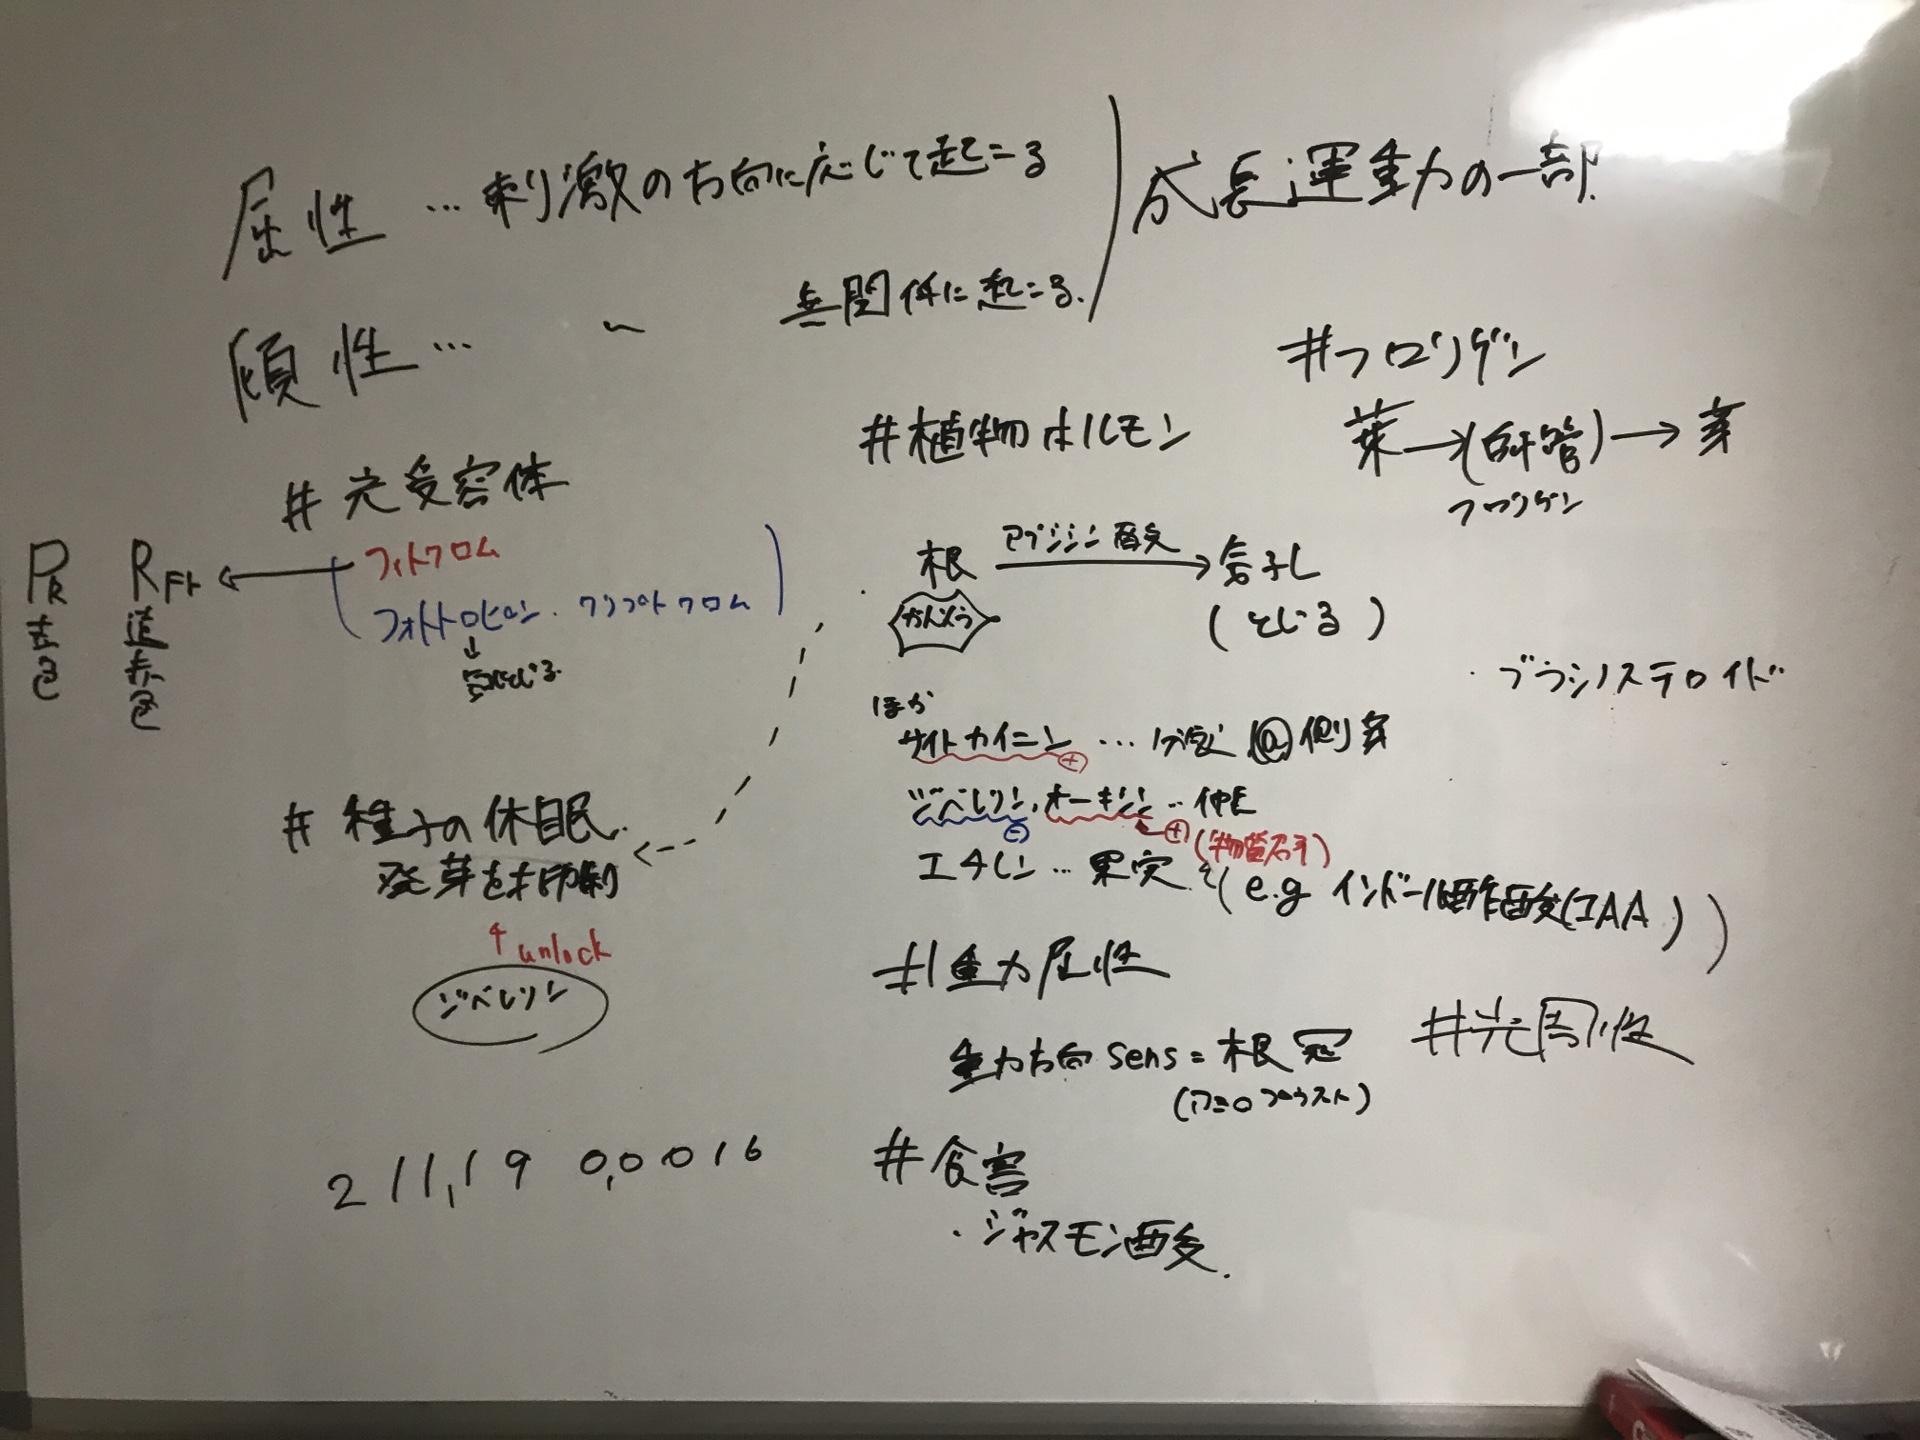 屈性 … 刺激の方向に応じて起こる
成長運動の一部.
傾性 … 〜 無関係に起こる.
#フロリゲン
葉→(師管)→芽
フロリゲン
#光受容体
フィトクロム
フォトトロピン・クリプトクロム
↓
PR
赤色
RFr
遠赤色
#植物ホルモン
根 アブシシン酸 → 気孔
かんそう
(とじる)
・ブラシノステロイド
ほか
サイトカイニン … @側芽
+
ジベレリン,オーキシン … 伸長
+(物質名予)
エチレン … 果実
(e.g インドール酢酸(IAA))
#種子の休眠.
発芽を抑制
↑unlock
ジベレリン
#重力屈性
重力方向 sens = 根冠
(アミロプラスト)
#光周性
#食害
・ジャスモン酸.
211,19 0,0016